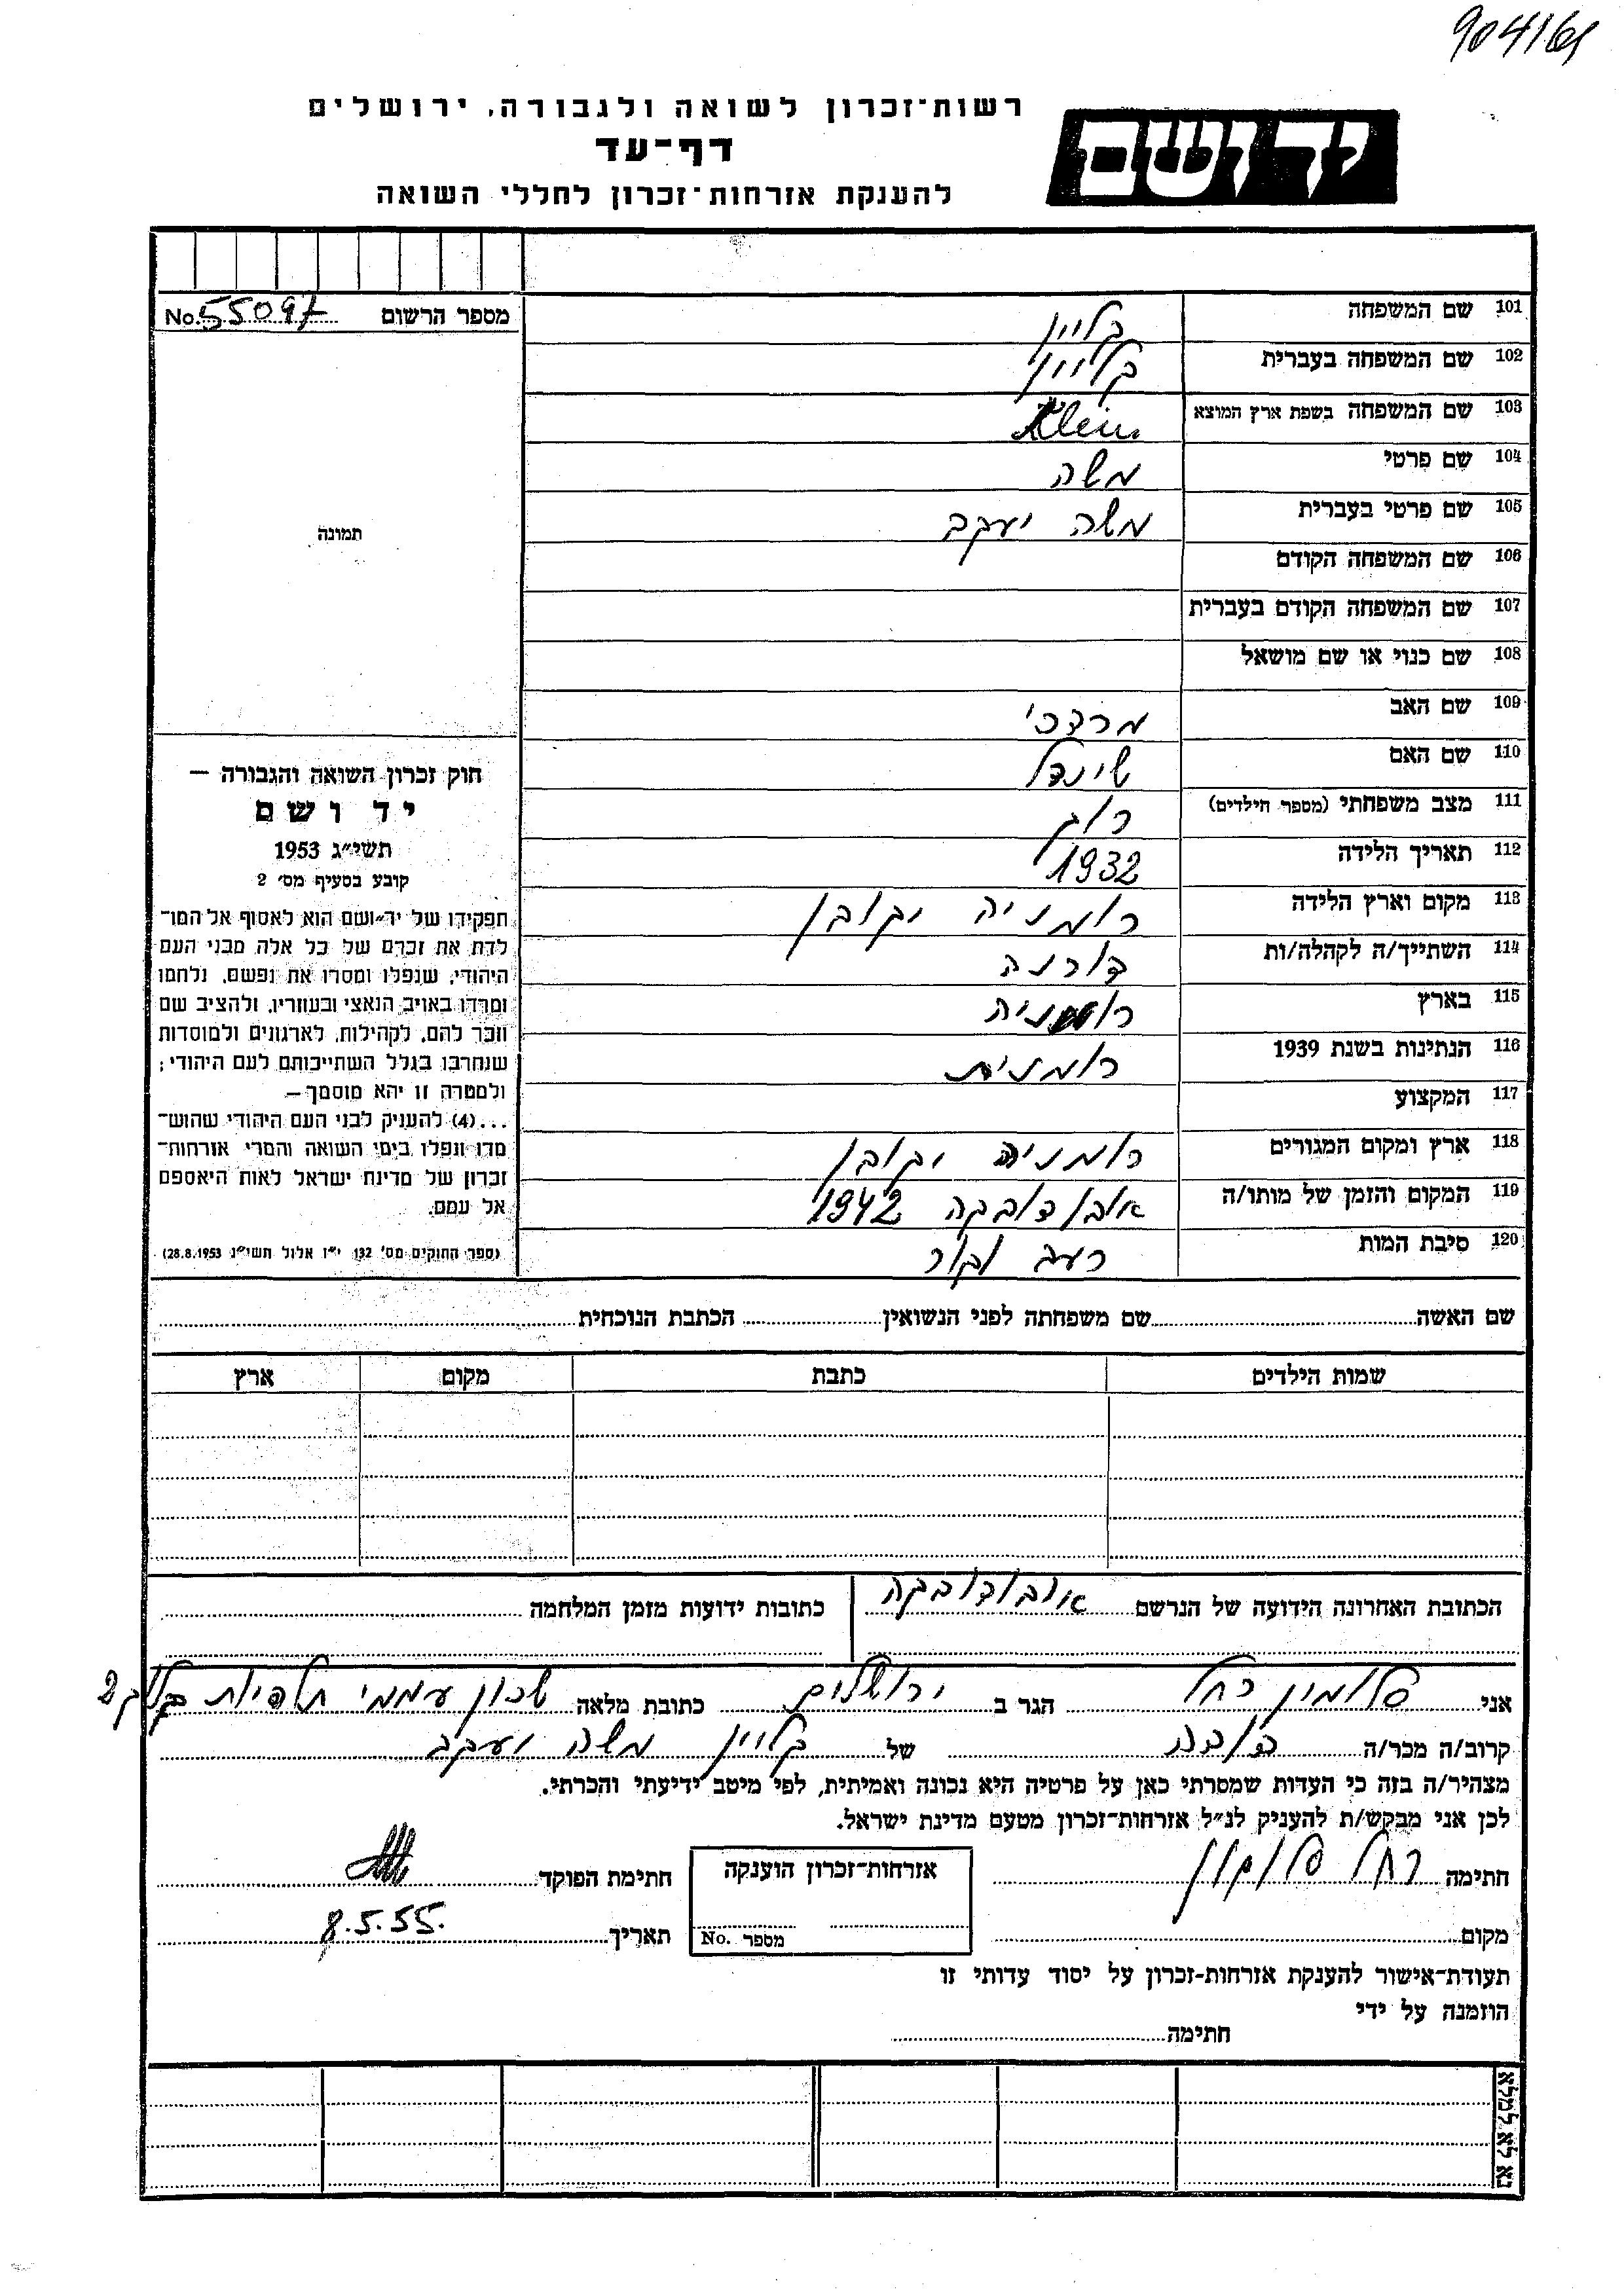 904161
רשות־זכרון לשואה ולגבורה, ירושלים
דף־עד
להענקת אזרחות־זכרון לחללי השואה
יד ושם
מספר הרשום No. 55097
תמונה
101 שם המשפחה קליין
102 שם המשפחה בעברית קליין
103 שם המשפחה בשפת ארץ המוצא Klein
104 שם פרטי משה
105 שם פרטי בעברית משה יעקב
106 שם המשפחה הקודם
107 שם המשפחה הקודם בעברית
108 שם כנוי או שם מושאל
109 שם האב מרדכי
110 שם האם שינדל
111 מצב משפחתי (מספר הילדים) רוק
112 תאריך הלידה 1932
113 מקום וארץ הלידה רומניה יקובן
114 השתייך/ה לקהלה/ות דורנה
115 בארץ רומניה
116 הנתינות בשנת 1939 רומנית
117 המקצוע
118 ארץ ומקום המגורים רומניה יקובן
119 המקום והזמן של מותו/ה אובודובקה 1942
120 סיבת המות רעב וקור
חוק זכרון השואה והגבורה —
יד ושם
תשי״ג 1953
קובע בסעיף מס׳ 2
תפקידו של יד־ושם הוא לאסוף אל המו־
לדת את זכרם של כל אלה מבני העם
היהודי, שנפלו ומסרו את נפשם, נלחמו
ומרדו באויב הנאצי ובעוזריו, ולהציב שם
וזכר להם, לקהילות, לארגונים ולמוסדות
שנחרבו בגלל השתייכותם לעם היהודי;
ולמטרה זו יהא מוסמך —
...(4) להעניק לבני העם היהודי שהוש־
מדו ונפלו בימי השואה והמרי אזרחות־
זכרון של מדינת ישראל לאות היאספם
אל עמם.
(ספר החוקים מס׳ 132 י״ז אלול תשי״ג 28.8.1953)
שם האשה שם משפחתה לפני הנשואין הכתבת הנוכחית
שמות הילדים כתבת מקום ארץ
הכתובת האחרונה הידועה של הנרשם אובודובקה כתובות ידועות מזמן המלחמה
אני רחל הגר ב ירושלים כתובת מלאה שכון עממי תלפיות
קרוב/ה מכר/ה של קליין משה יעקב
מצהיר/ה בזה כי העדות שמסרתי כאן על פרטיה היא נכונה ואמיתית, לפי מיטב ידיעתי והכרתי.
לכן אני מבקש/ת להעניק לנ״ל אזרחות־זכרון מטעם מדינת ישראל.
חתימה רחל אזרחות־זכרון הוענקה חתימת הפוקד
מקום מספר No. תאריך 8.5.55.
תעודת־אישור להענקת אזרחות־זכרון על יסוד עדותי זו
הוזמנה על ידי
חתימה
נא לא למלא